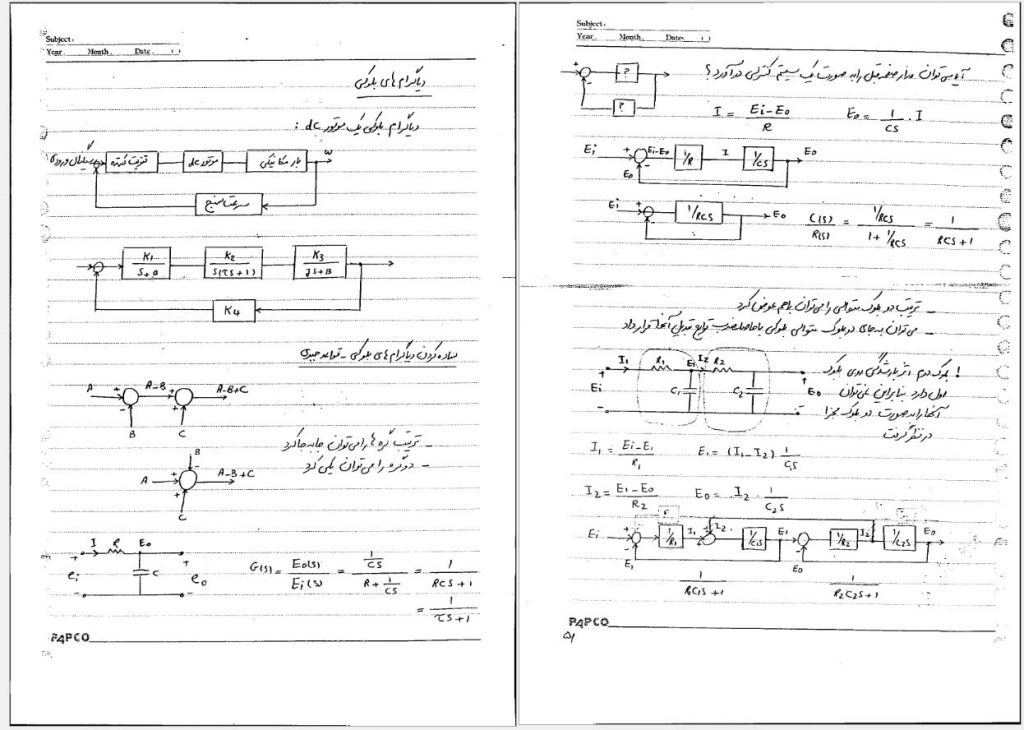 Subject:
Year. Month. Date. ( )
دیاگرام های بلوکی
دیاگرام بلوکی یک موتور dc :
سیگنال ورودی
تقویت کننده
موتور dc
بار مکانیکی
ω
سرعت سنج
K1
S+a
K2
S(τS+1)
K3
JS+B
K4
ساده کردن دیاگرام های بلوکی - قواعد جبری
A + A-B + A-B+C
- B + C
- ترتیب گره ها را می توان جابه جا کرد
B -
- دو گره را می توان یکی کرد
A + A-B+C
+ C
I R E0
+ ei - C + e0 -
G(s) = E0(s)/Ei(s) = (1/CS)/(R + 1/CS) = 1/(RCS+1)
= 1/(τS+1)
PAPCO
Subject:
Year. Month. Date. ( )
آیا می توان مدار صفحه قبل را به صورت یک سیستم کنترلی در آورد؟
+ - ? ?
I = (Ei-E0)/R E0 = 1/CS . I
Ei + Ei-E0 1/R I 1/CS E0
E0 -
Ei + - 1/RCS E0
C(s)/R(s) = (1/RCS)/(1 + 1/RCS) = 1/(RCS+1)
- ترتیب دو بلوک متوالی را می توان با هم عوض کرد
- می توان به جای دو بلوک متوالی بلوکی با حاصلضرب توابع تبدیل آنها قرار داد
! بلوک دوم اثر بارشدگی روی بلوک
اول دارد بنابراین نمی توان
آنها را به صورت دو بلوک مجزا
در نظر گرفت
+ I1 R1 E1 I2 R2 +
Ei C1 C2 E0
I1 = (Ei-E1)/R1 E1 = (I1-I2) 1/C1S
I2 = (E1-E0)/R2 E0 = I2 . 1/C2S
Ei + - 1/R1 I1 + - I2 1/C1S E1 + - 1/R2 I2 1/C2S E0
E1 E0
1/(RC1S+1) 1/(R2C2S+1)
PAPCO
51